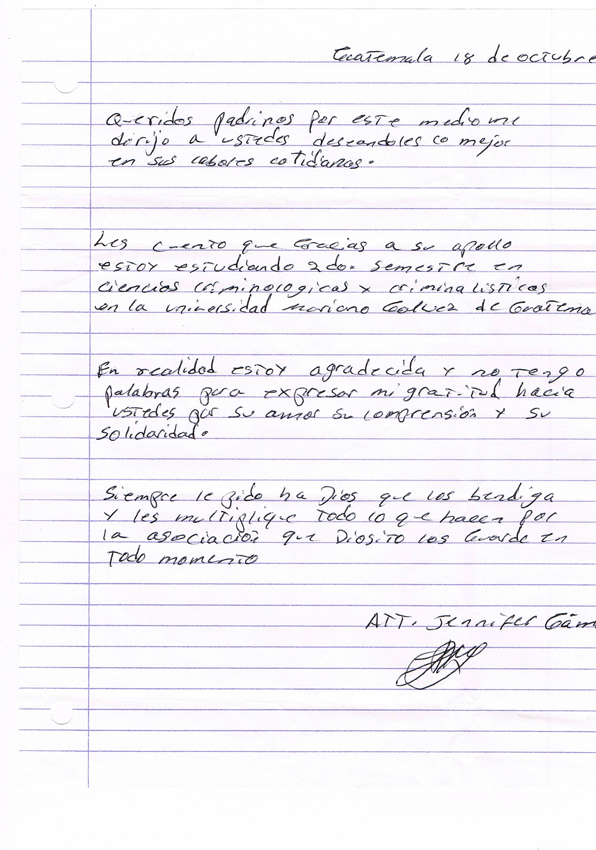 Guatemala 18 de octubre
Queridos padrinos por este medio me
dirijo a ustedes deseandoles lo mejor
en sus labores cotidianas.
Les cuento que Gracias a su apollo
estoy estudiando 2do. semestre en
ciencias criminologicas y criminalisticas
en la universidad Mariano Galvez de Guatema
En realidad estoy agradecida y no tengo
palabras para expresar mi gratitud hacia
ustedes por su amor su comprensión y su
solidaridad.
Siempre le pido ha Dios que los bendiga
y les multiplique todo lo que hacen por
la asociación que Diosito los Guarde en
todo momento
ATT. Jennifer Gám